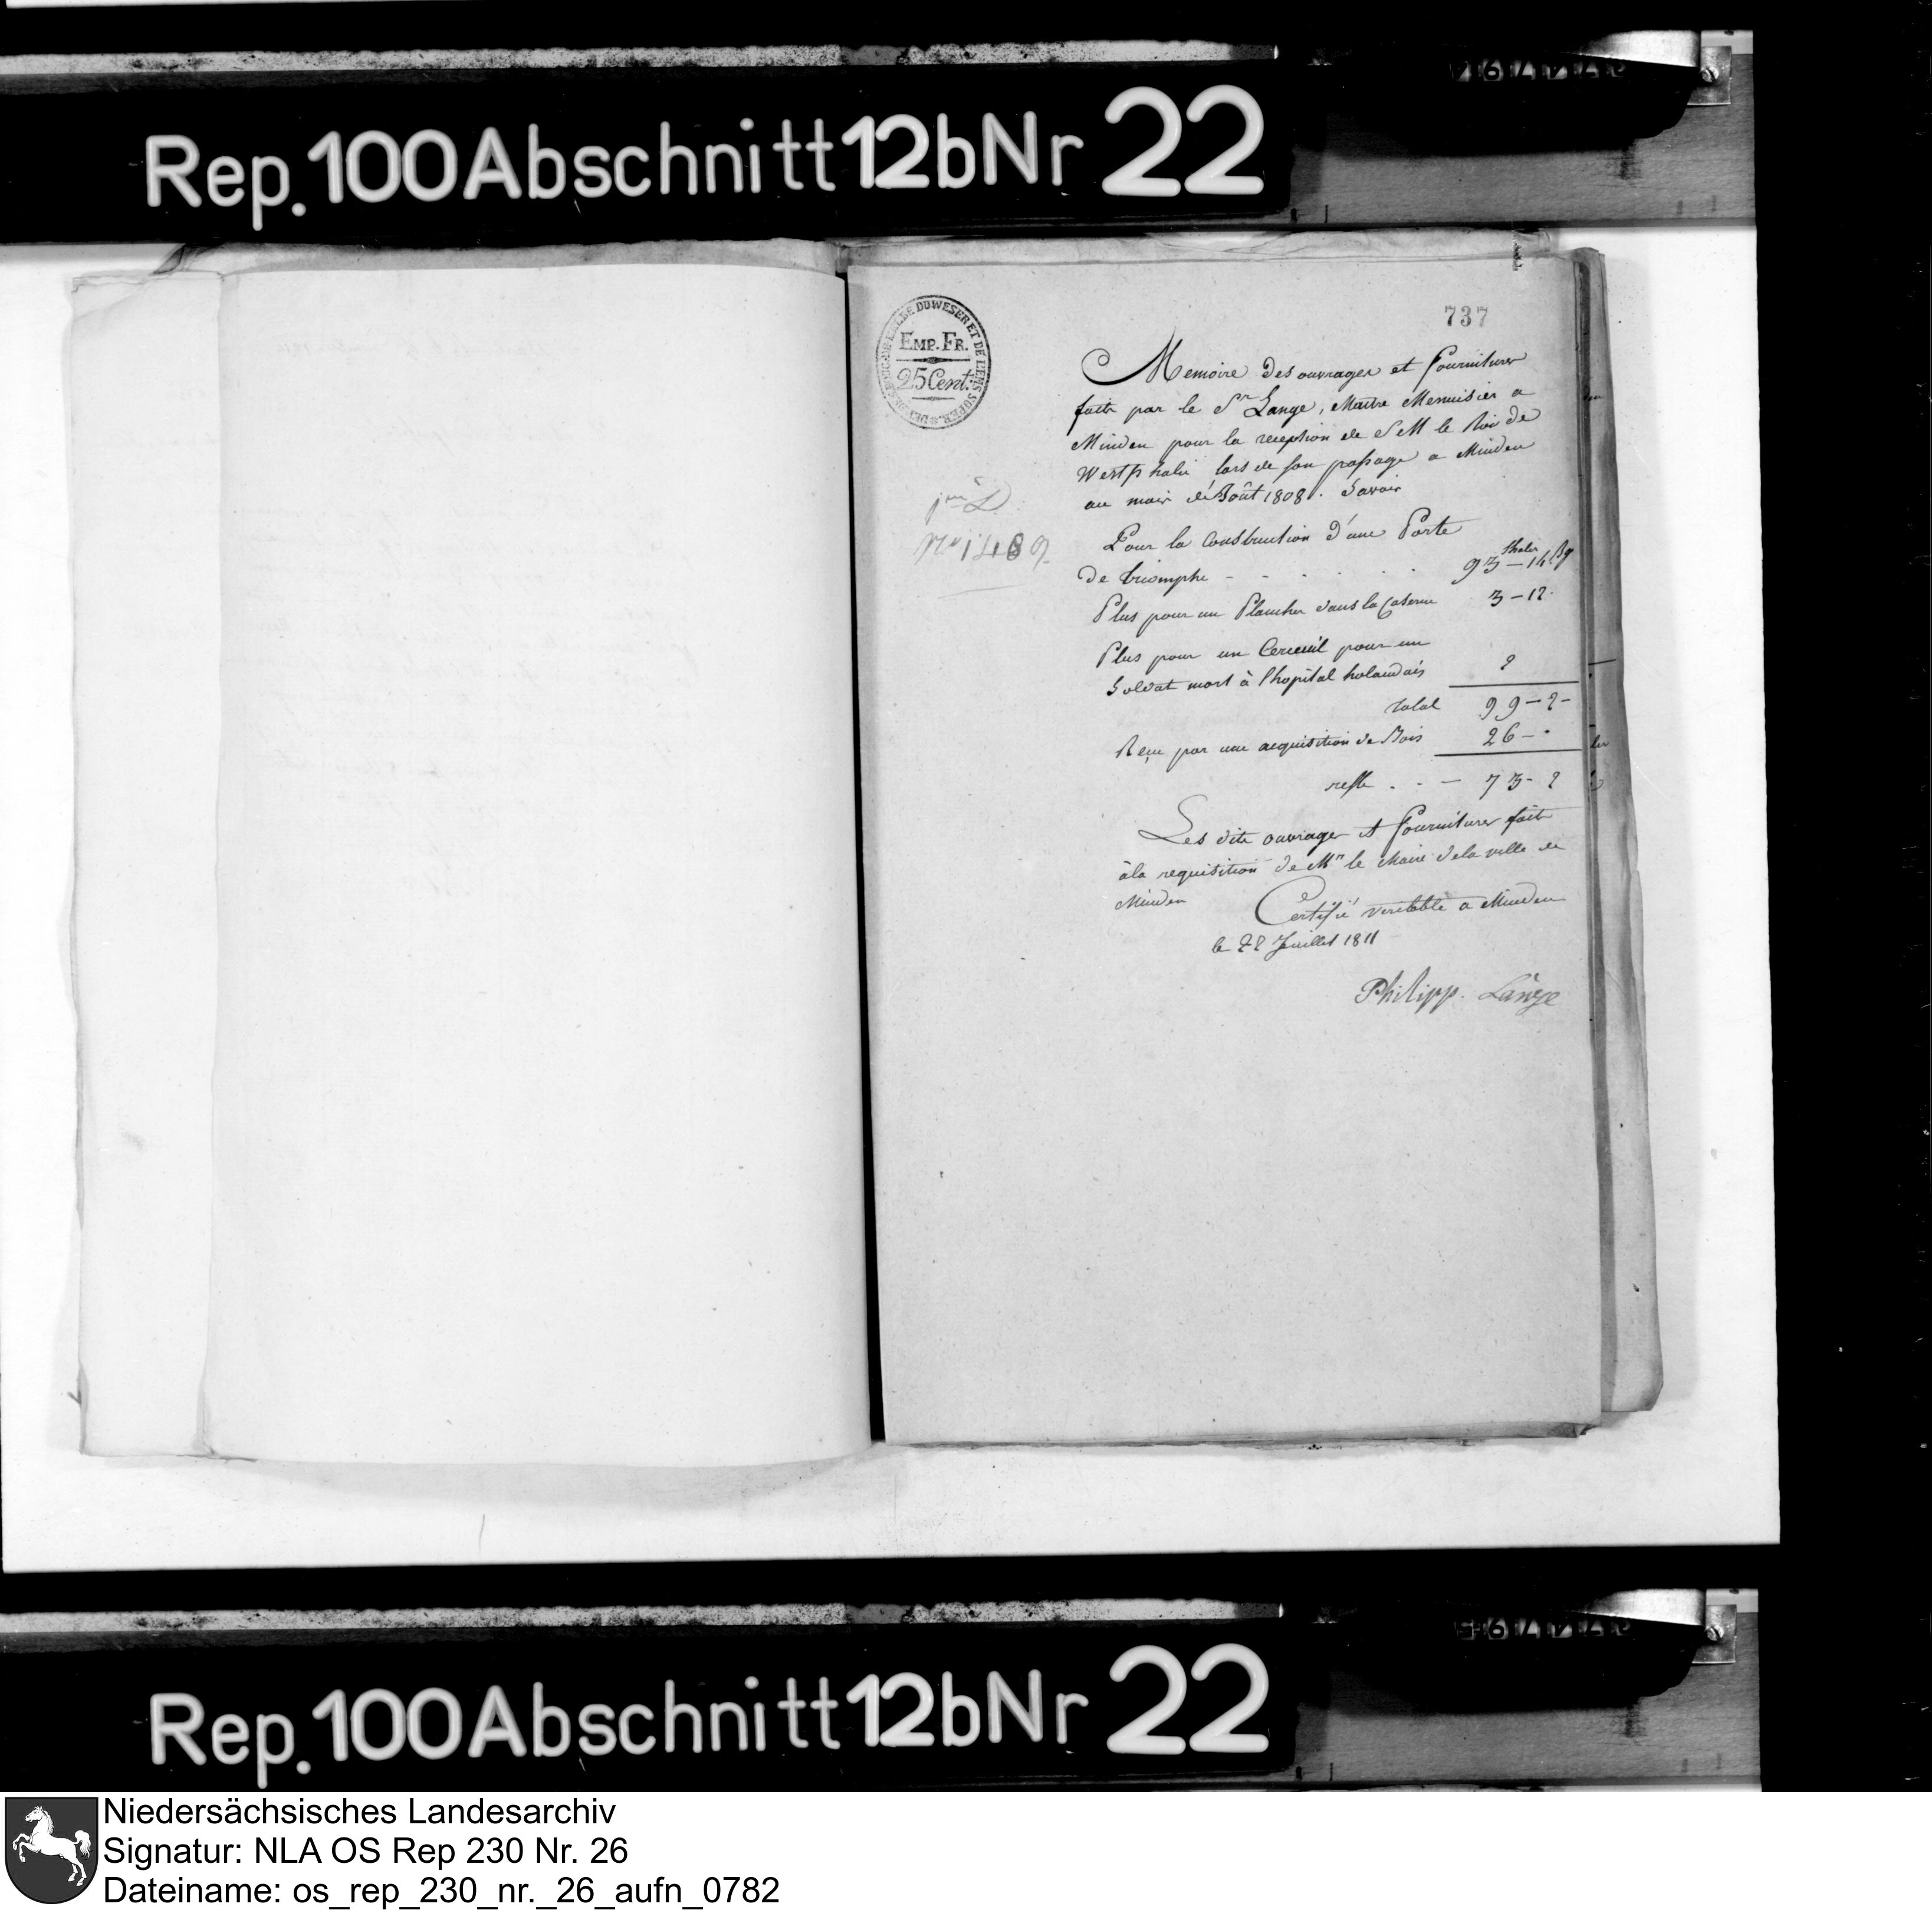 Rep. 100 Abschnitt 12b Nr 22
737
EMP. FR.
25 Cent.
Memoire des ouvrages et fournitures
faits par le Sr Lange, Maitre Menuisier a
Minden pour la reception de S M le Roi de
Westphalie lors de son passage a Minden
au mois d'Août 1808. Savoir
Pour la Construction d'une Porte
thaler
de triomphe - - . . . . 93 - 14
Plus pour un Plancher dans la Caserne 3 - 12
Plus pour un Cerceuil pour un
Soldat mort à l'hopital holandais 2
total 99 - 2 -
Reçu par une acquisition de Bois 26 - .
reste . . - 73 - 2
Les dits ouvrages et fournitures faits
à la requisition de Mr le Maire de la ville de
Minden Certifié veritable a Minden
le 22 Juillet 1811
Philipp. Lange
Rep. 100 Abschnitt 12b Nr 22
Niedersächsisches Landesarchiv
Signatur: NLA OS Rep 230 Nr. 26
Dateiname: os_rep_230_nr._26_aufn_0782